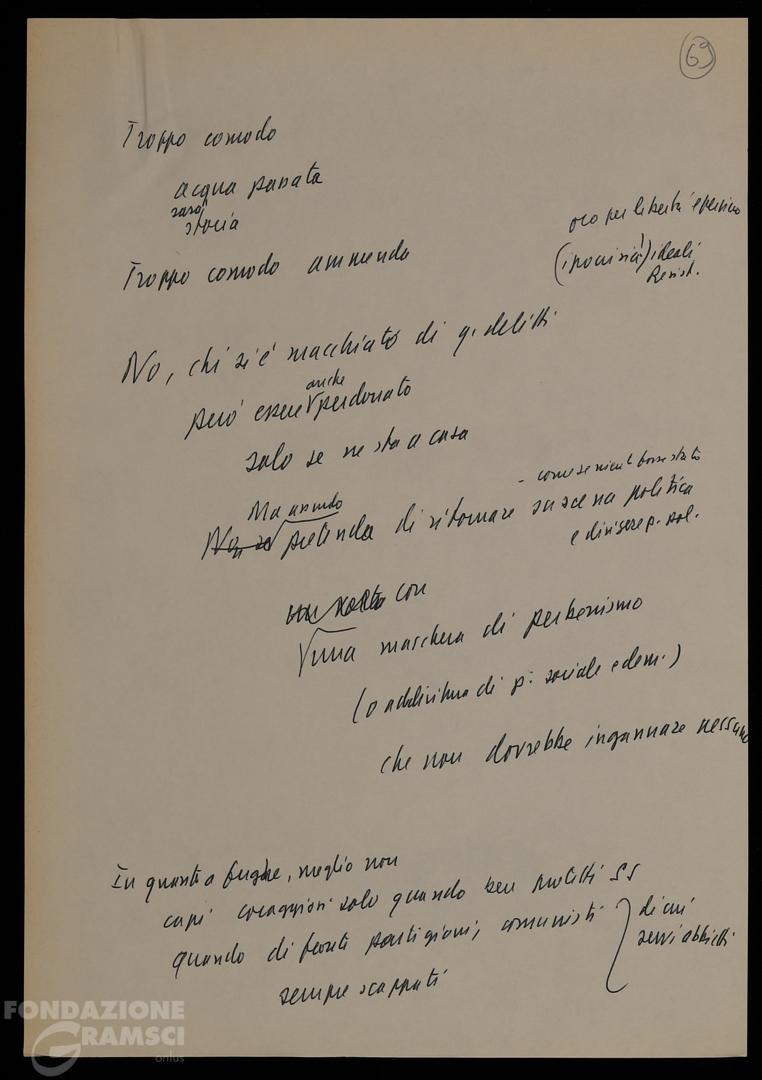 69
Troppo comodo
acqua passata
sarà
storia
Troppo comodo ammenda
oro per libertà e persino
(ipocrisia!) ideali
Resist.
No, chi si è macchiato di q. delitti
anche
può essere perdonato
solo se ne sta a casa
Ma assurdo
pretenda di ritornare su scena politica
- come se nient' fosse stato
e dirigere p. pol.
un volto con
una maschera di perbenismo
(o addirittura di p. sociale e dem.)
che non dovrebbe ingannare nessuno
In quanto a fughe, meglio non
capi coraggiosi solo quando ben protetti SS
quando di fronte partigiani, comunisti
sempre scappati
di cui
servi abbietti
FONDAZIONE
GRAMSCI
onlus